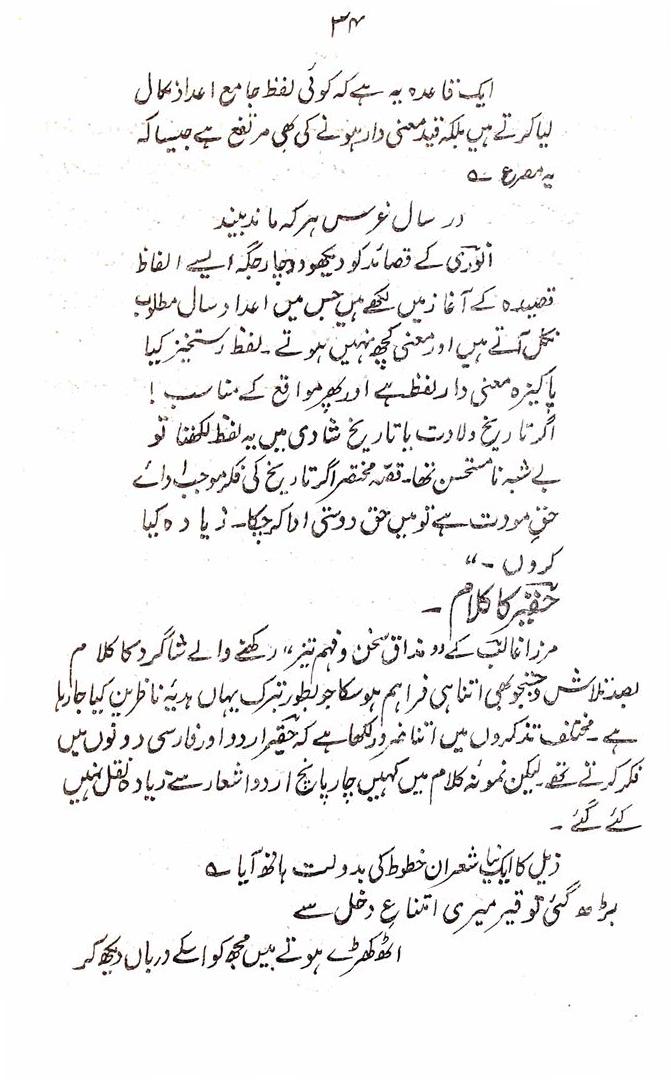 ۳۴
ایک قاعدہ یہ ہے کہ کوئی لفظ جامع اعداد نکال
لیا کرتے ہیں بلکہ قید معنی دار ہونے کی بھی مرتفع ہے جیسا کہ
یہ مصرع ے
در سال غرس ہر کہ ماند بیند
انوری کے قصائد کو دیکھو دو چار جگہ ایسے الفاظ
قصیدہ کے آغاز میں لکھے ہیں جس میں اعداد سال مطلوب
نکل آتے ہیں اور معنی کچھ نہیں ہوتے ۔ لفظ رستخیز کیا
پاکیزہ معنی دار لفظ ہے اور پھر مواقع کے مناسب !
اگر تاریخ ولادت یا تاریخ شادی میں یہ لفظ لکھتا تو
بے شبہ نامستحسن تھا۔ قصّہ مختصر اگر تاریخ کی فکر موجب ادائے
حقِ مودت ہے تو میں حق دوستی ادا کر چکا۔ زیادہ کیا
کروں ۔“
حقیر کا کلام ۔
مرزا غالب کے ”مذاق سخن و فہم تیز“ رکھنے والے شاگرد کا کلام
بصد تلاش و جستجو بھی اتنا ہی فراہم ہو سکا جو بطور تبرک یہاں ہدیۂ ناظرین کیا جا رہا
ہے ۔ مختلف تذکروں میں اتنا ضرور لکھا ہے کہ حقیر اردو اور فارسی دونوں میں
فکر کرتے تھے ۔ لیکن نمونہ کلام میں کہیں چار پانچ اردو اشعار سے زیادہ نقل نہیں
کئے گئے ۔
ذیل کا ایک نیا شعر ان خطوط کی بدولت ہاتھ آیا ے
بڑھ گئی توقیر میری امتناعِ دخل سے
اٹھ کھڑے ہوتے ہیں مجھ کو اسکے درباں دیکھ کر